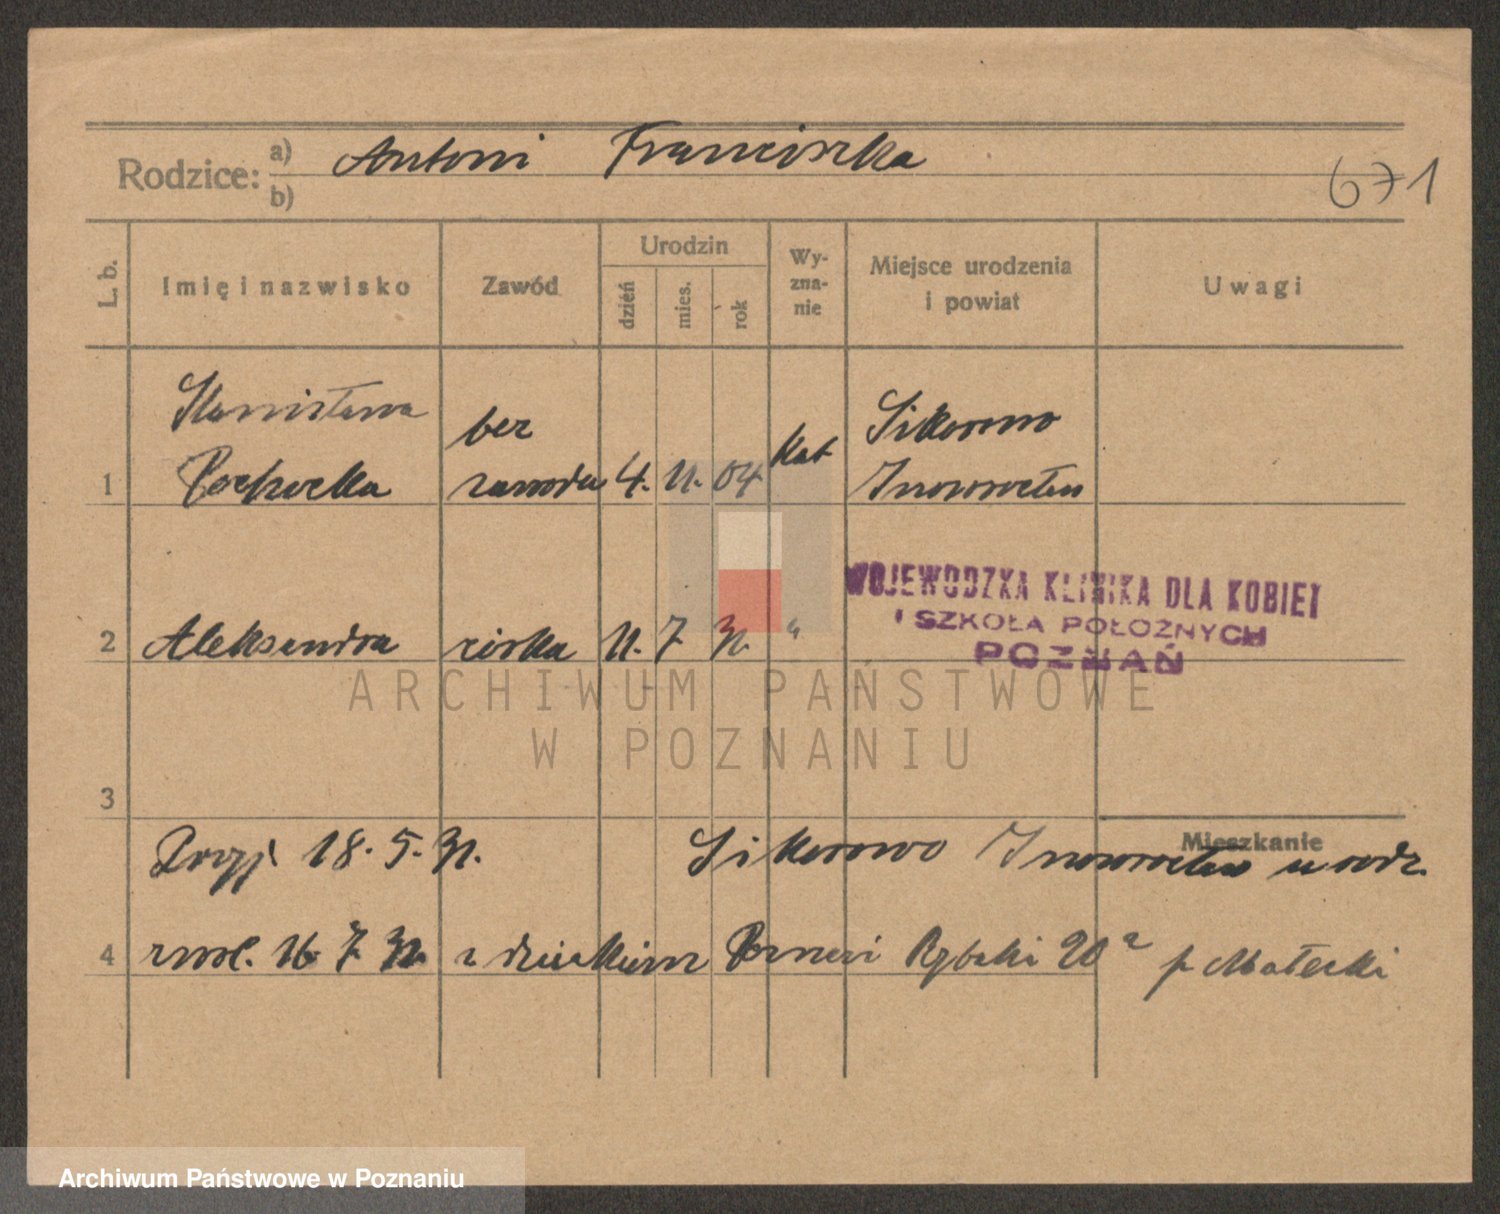 Rodzice: a) Antoni Franciszka
b)
671
L. b.
Imię i nazwisko
Zawód
Urodzin
dzień
mies.
rok
Wy-
zna-
nie
Miejsce urodzenia
i powiat
Uwagi
Stanisława bez Kat Sikorowo
1 Pochocka zawodu 4. 11. 04 Inowrocław
WOJEWODZKA KLINIKA DLA KOBIET
I SZKOŁA POŁOŻNYCH
POZNAŃ
2 Aleksandra córka 11. 7. 31. "
ARCHIWUM PAŃSTWOWE
W POZNANIU
3
Mieszkanie
Przyj. 18. 5. 31. Sikorowo Inowrocław u rodz.
4 zwol. 16. 7. 31. z dzieckiem Rybaki 20a p Małecki
Archiwum Państwowe w Poznaniu